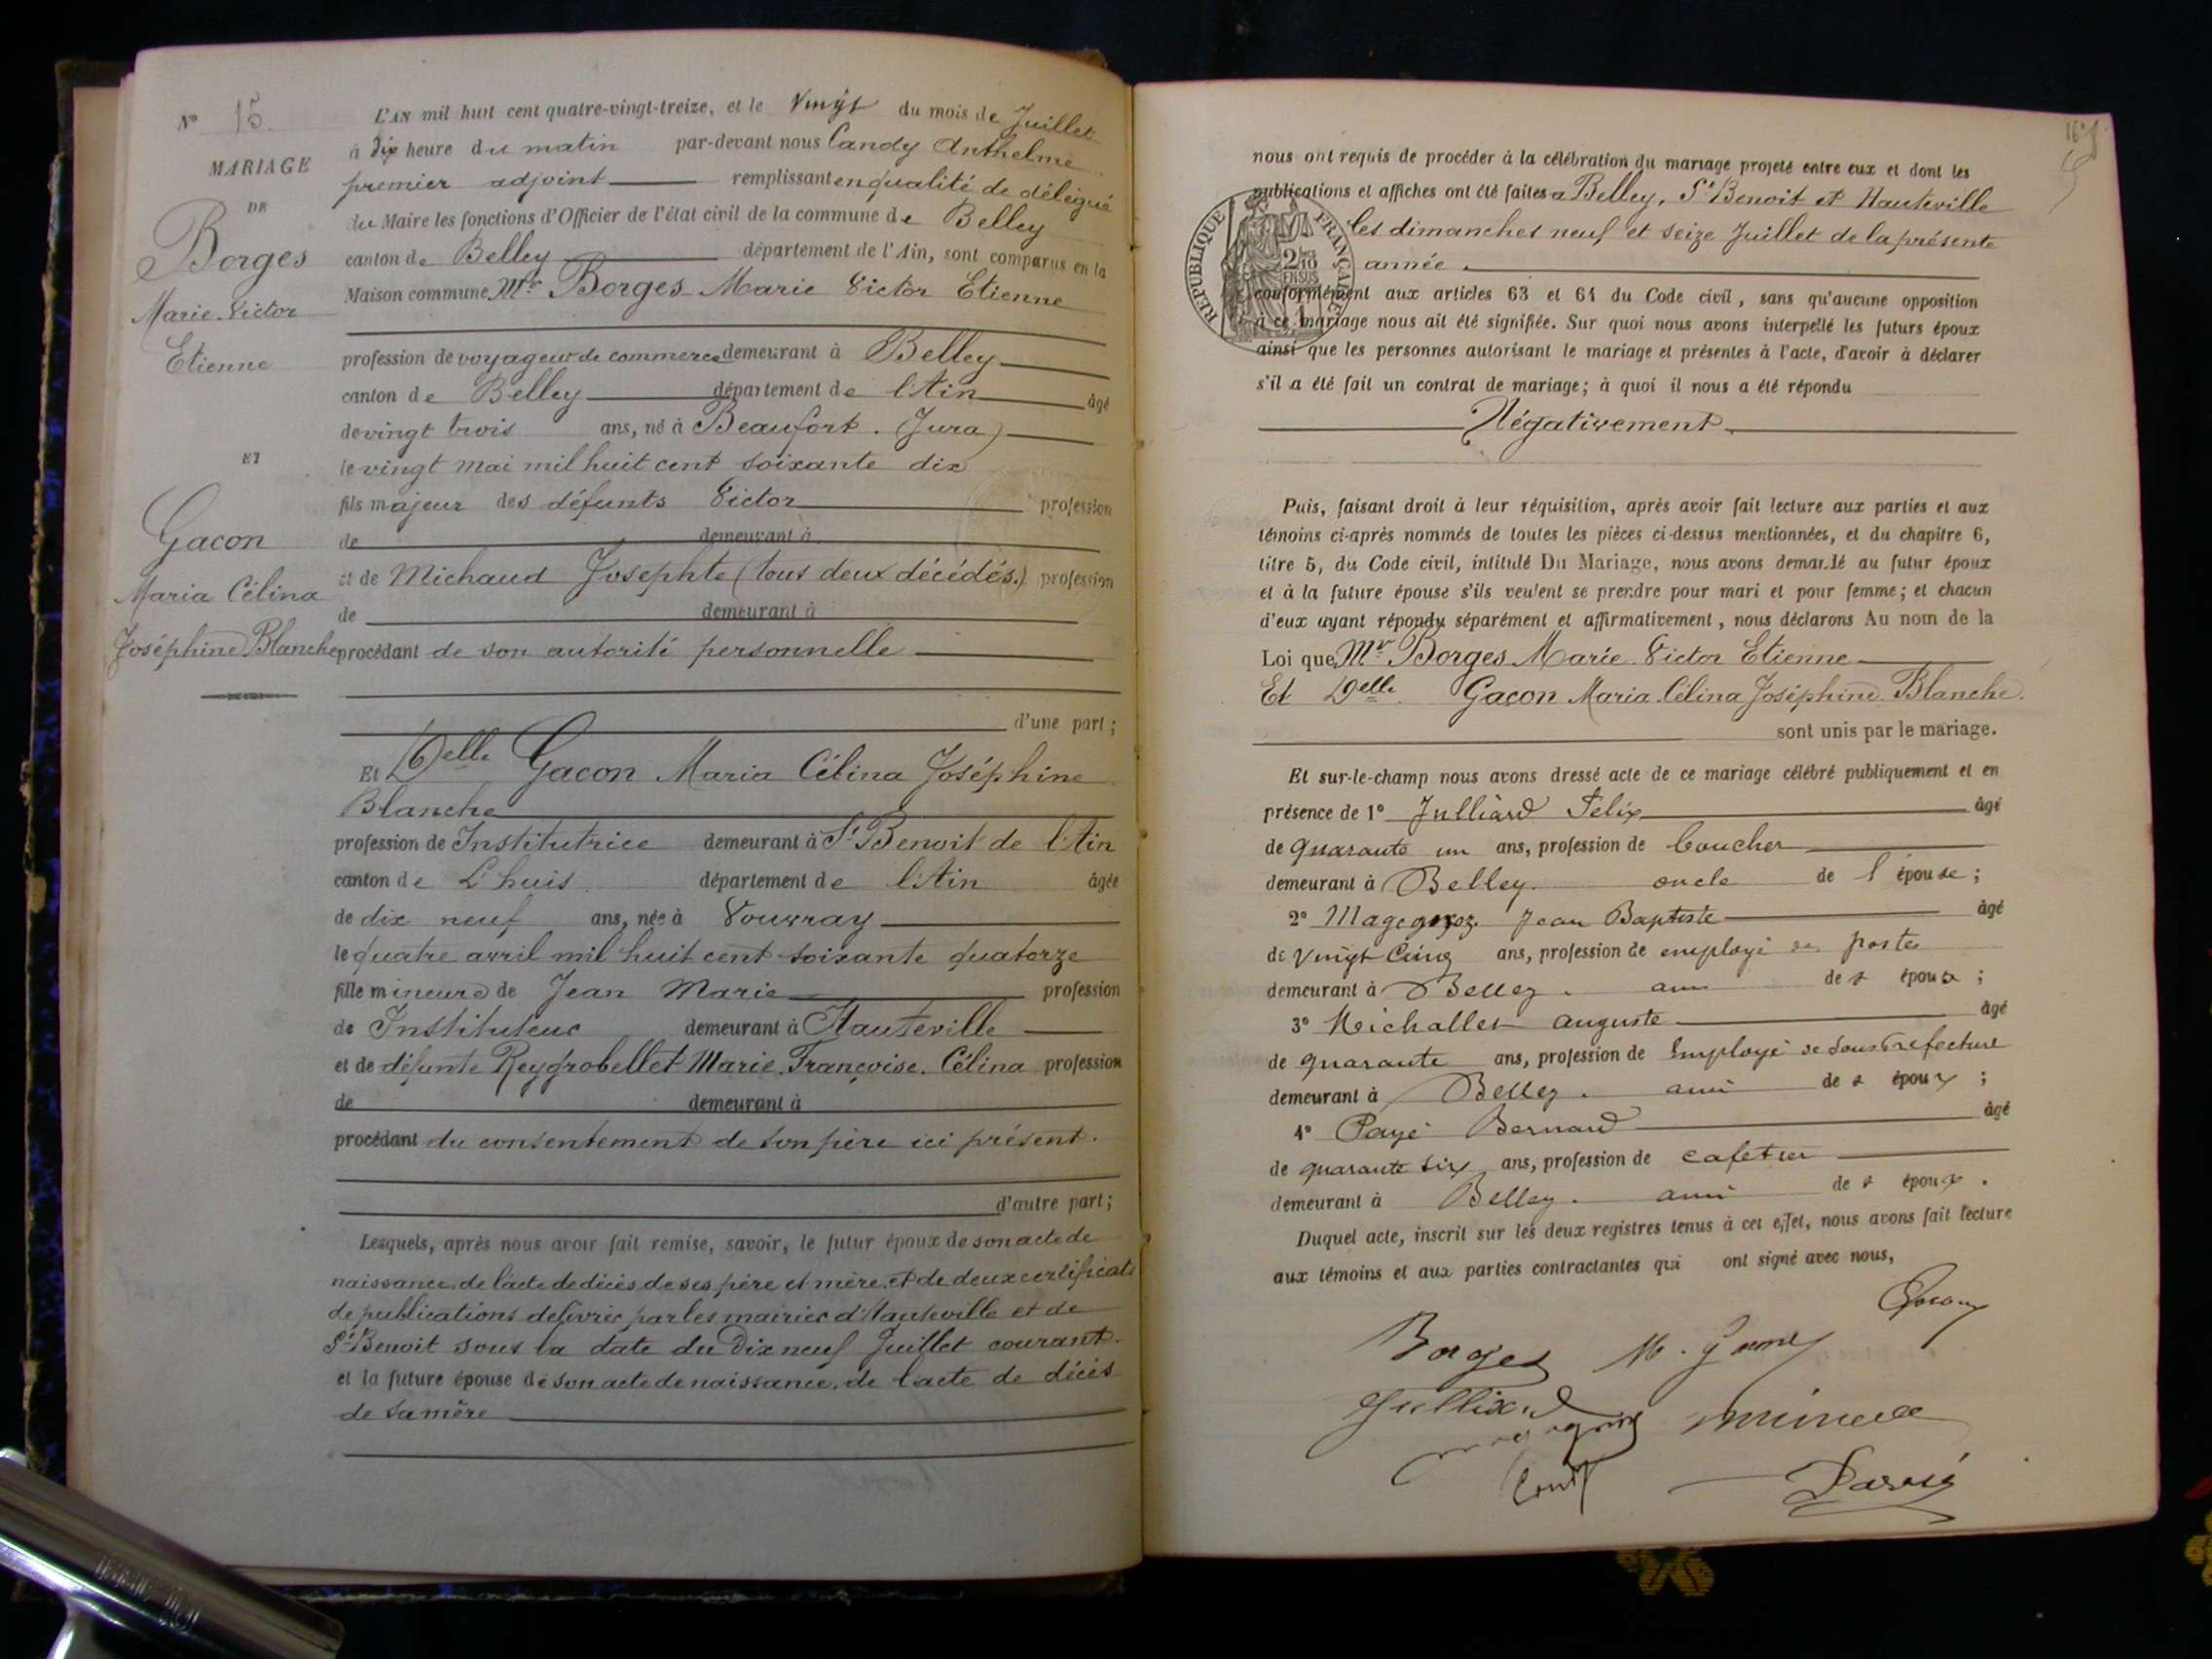 N° 15.
MARIAGE
DE
Borges
Marie Victor
Etienne
ET
Gacon
Maria Célina
Joséphine Blanche
L'AN mil huit cent quatre-vingt-treize, et le vingt du mois de Juillet
à dix heure du matin par-devant nous Candy Anthelme
premier adjoint remplissant en qualité de délégué
du Maire les fonctions d'Officier de l'état civil de la commune de Belley
canton de Belley département de l'Ain, sont comparus en la
Maison commune Mr Borges Marie Victor Etienne
profession de voyageur de commerce demeurant à Belley
canton de Belley département de l'Ain âgé
de vingt trois ans, né à Beaufort. (Jura)
le vingt mai mil huit cent soixante dix
fils majeur des défunts Victor profession
de demeurant à
et de Michaud Josephte (tous deux décédés.) profession
de demeurant à
procédant de son autorité personnelle
d'une part;
Et Delle Gacon Maria Célina Joséphine
Blanche
profession de Institutrice demeurant à St Benoit de l'Ain
canton de L'huis département de l'Ain âgée
de dix neuf ans, née à Vouvray
le quatre avril mil huit cent soixante quatorze
fille mineure de Jean Marie profession
de Instituteur demeurant à Hauteville
et de défunte Reygrobellet Marie Françoise Célina profession
de demeurant à
procédant du consentement de son père ici présent.
d'autre part;
Lesquels, après nous avoir fait remise, savoir, le futur époux de son acte de
naissance, de l'acte de décès de ses père et mère, et de deux certificats
de publications delivrés par les mairies d'Hauteville et de
St Benoit sous la date du Dix neuf Juillet courant.
et la future épouse de son acte de naissance, de l'acte de décès
de sa mère
nous ont requis de procéder à la célébration du mariage projeté entre eux et dont les
publications et affiches ont été faites a Belley, St Benoit et Hauteville
les dimanches neuf et seize Juillet de la présente
année
RÉPUBLIQUE FRANÇAISE
conformément aux articles 63 et 64 du Code civil, sans qu'aucune opposition
à ce mariage nous ait été signifiée. Sur quoi nous avons interpellé les futurs époux
ainsi que les personnes autorisant le mariage et présentes à l'acte, d'avoir à déclarer
s'il a été fait un contrat de mariage; à quoi il nous a été répondu
Négativement
Puis, faisant droit à leur réquisition, après avoir fait lecture aux parties et aux
témoins ci-après nommés de toutes les pièces ci-dessus mentionnées, et du chapitre 6,
titre 5, du Code civil, intitulé Du Mariage, nous avons demandé au futur époux
et à la future épouse s'ils veulent se prendre pour mari et pour femme; et chacun
d'eux ayant répondu séparément et affirmativement, nous déclarons Au nom de la
Loi que Mr Borges Marie Victor Etienne
Et Delle Gacon Maria Célina Joséphine Blanche.
sont unis par le mariage.
Et sur-le-champ nous avons dressé acte de ce mariage célébré publiquement et en
présence de 1° Julliard Felix âgé
de quarante un ans, profession de boucher
demeurant à Belley. oncle de l'épouse;
2° Jean Baptiste âgé
de vingt Cinq ans, profession de employé des postes
demeurant à Belley. ami de l'époux;
3° Michallet auguste âgé
de quarante ans, profession de Employé de Sous Prefecture
demeurant à Belley. ami de l'époux;
4° Payé Bernard âgé
de quarante six ans, profession de cafetier
demeurant à Belley. ami de l'époux.
Duquel acte, inscrit sur les deux registres tenus à cet effet, nous avons fait lecture
aux témoins et aux parties contractantes qui ont signé avec nous,
Borges
Julliard